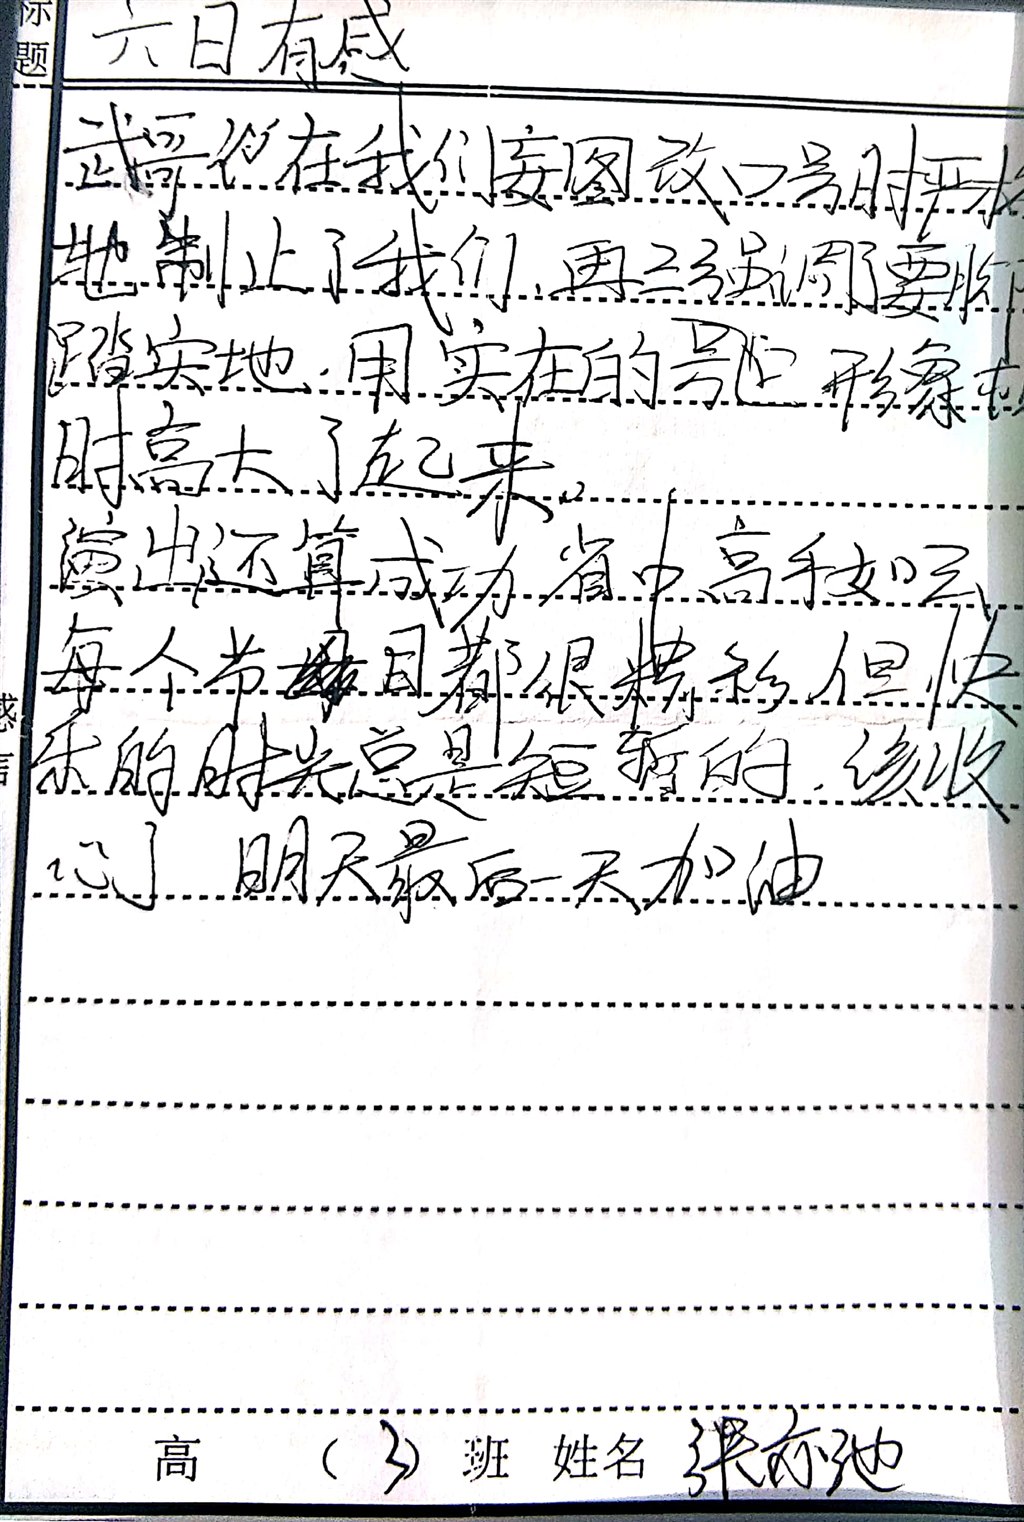 标题 六日有感
武哥彷在我们妄图改口号时严格
地制止了我们,再三强调了要脚
踏实地,用实在的号,形象顿
时高大了起来。
演出还算成功 省中高手如云,
每个节目都很精彩,但快
乐的时光总是短暂的,该收
心了 明天最后一天加油
感言
高 (3) 班 姓名 张亦弛